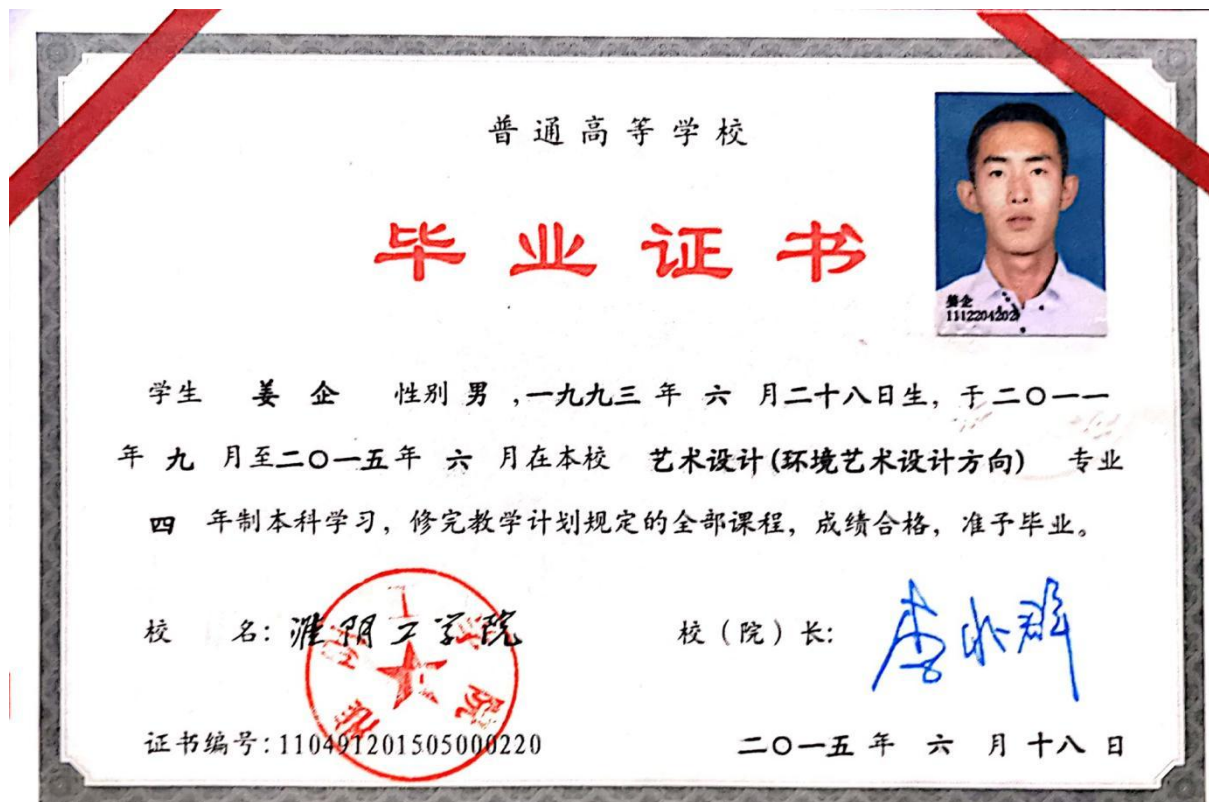 普通高等学校
毕业证书
姜企
1112204202
学生 姜 企 性别 男 ,一九九三 年 六 月二十八日生, 于二〇一一
年 九 月至二〇一五年 六 月在本校 艺术设计(环境艺术设计方向) 专业
四 年制本科学习, 修完教学计划规定的全部课程, 成绩合格, 准予毕业。
校 名: 淮阴工学院
校(院)长:
淮阴工学院
证书编号:110491201505000220
二〇一五 年 六 月 十八 日